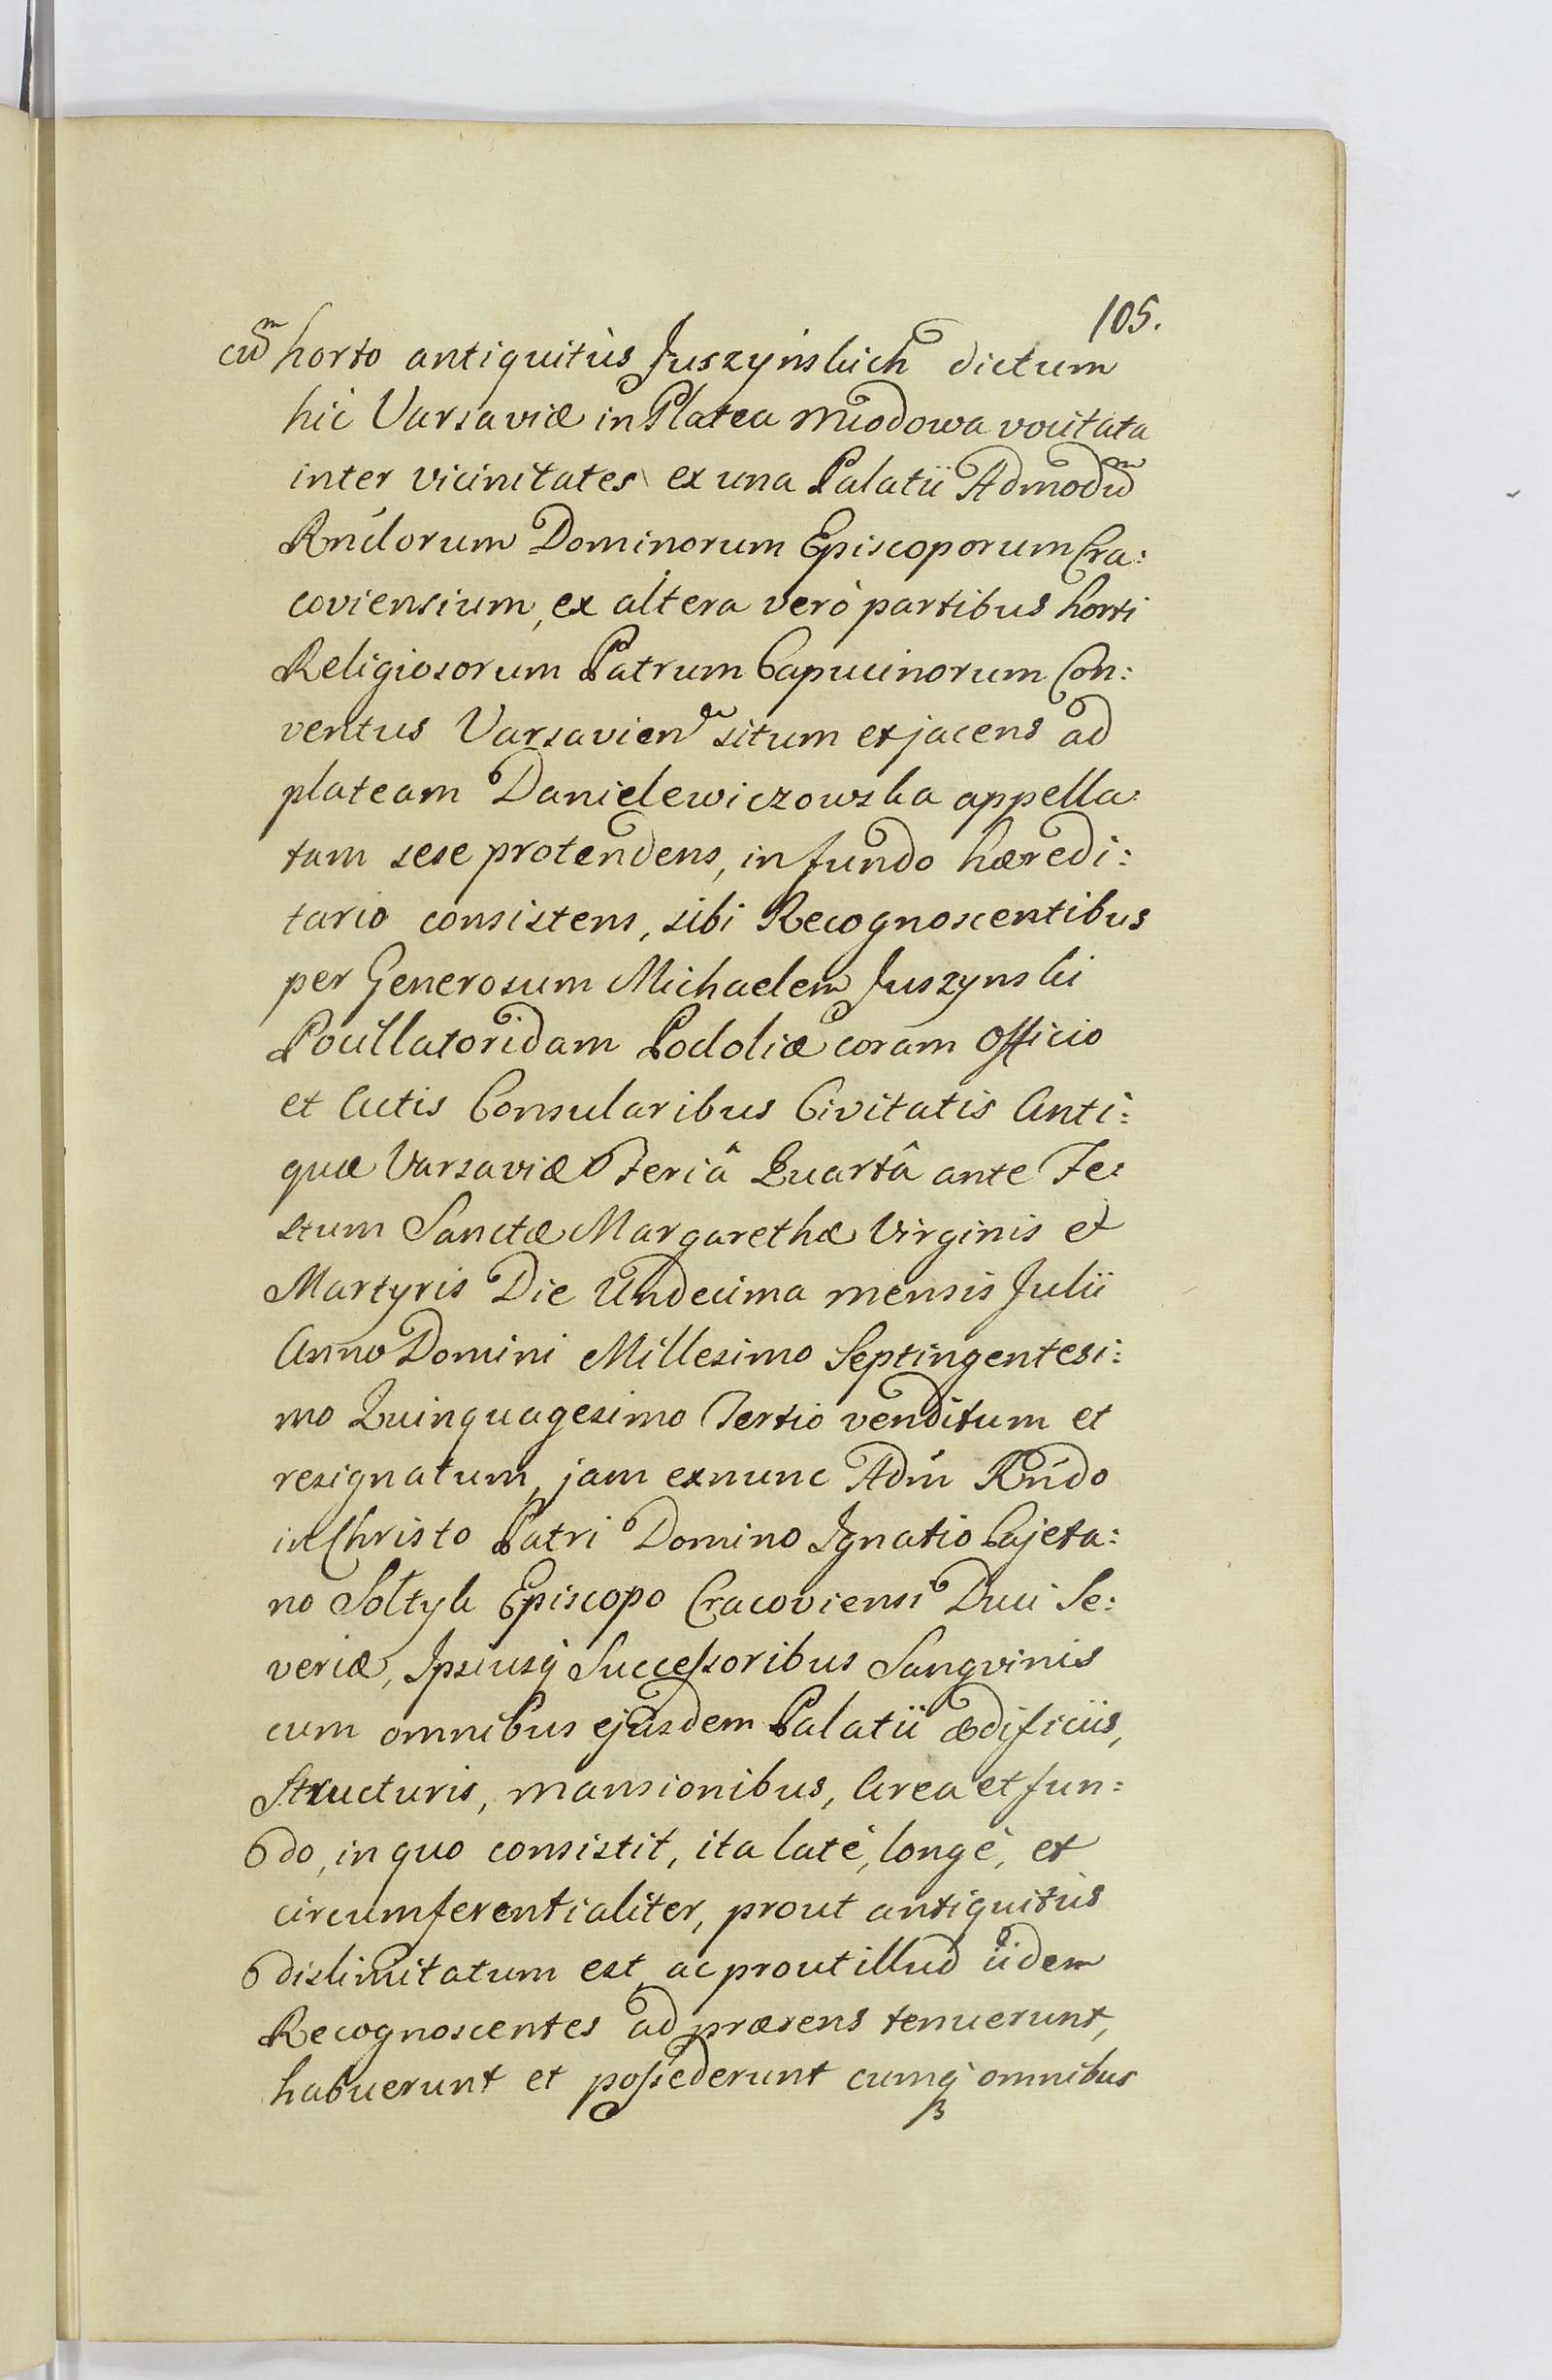 105.
cum horto antiquitùs Juszyńskich dictum
hic Varsaviæ in Platea Miodowa vocitata
inter vicinitates ex una Palatii Admodum
Rndorum Dominorum Episcoporum Cra:
coviensium, ex altera verò partibus horti
Religiosorum Patrum Capucinorum Con:
ventus Varsavien situm et jacens ad
plateam Danielewiczowska appella:
tam sese protendens, in fundo hæredi:
tario consistens, sibi Recognoscentibus
per Generosum Michaelem Juszynski
Pocillatoridam Podoliæ coram Officio
et Actis Consularibus Civitatis Anti:
quæ Varsaviæ Feriâ Quartâ ante Fe:
stum Sanctæ Margarethæ Virginis et
Martyris Die Undecima mensis Julii
Anno Domini Millesimo Septingentesi:
mo Quinquagesimo Tertio venditum et
resignatum, jam exnunc Adm Rńdo
in Christo Patri Domino Ignatio Cajeta:
no Sołtyk Episcopo Cracoviensi Duci Se:
veriæ, Ipsiusq Successoribus Sangvinis
cum omnibus ejusdem Palatii ædificiis,
Structuris, mansionibus, Area et fun:
do, in quo consistit, ita latè, longè, et
circumferentialiter, prout antiquitùs
dislimitatum est, ac prout illud iidem
Recognoscentes ad præsens tenuerunt,
habuerunt et possederunt cumq omnibus